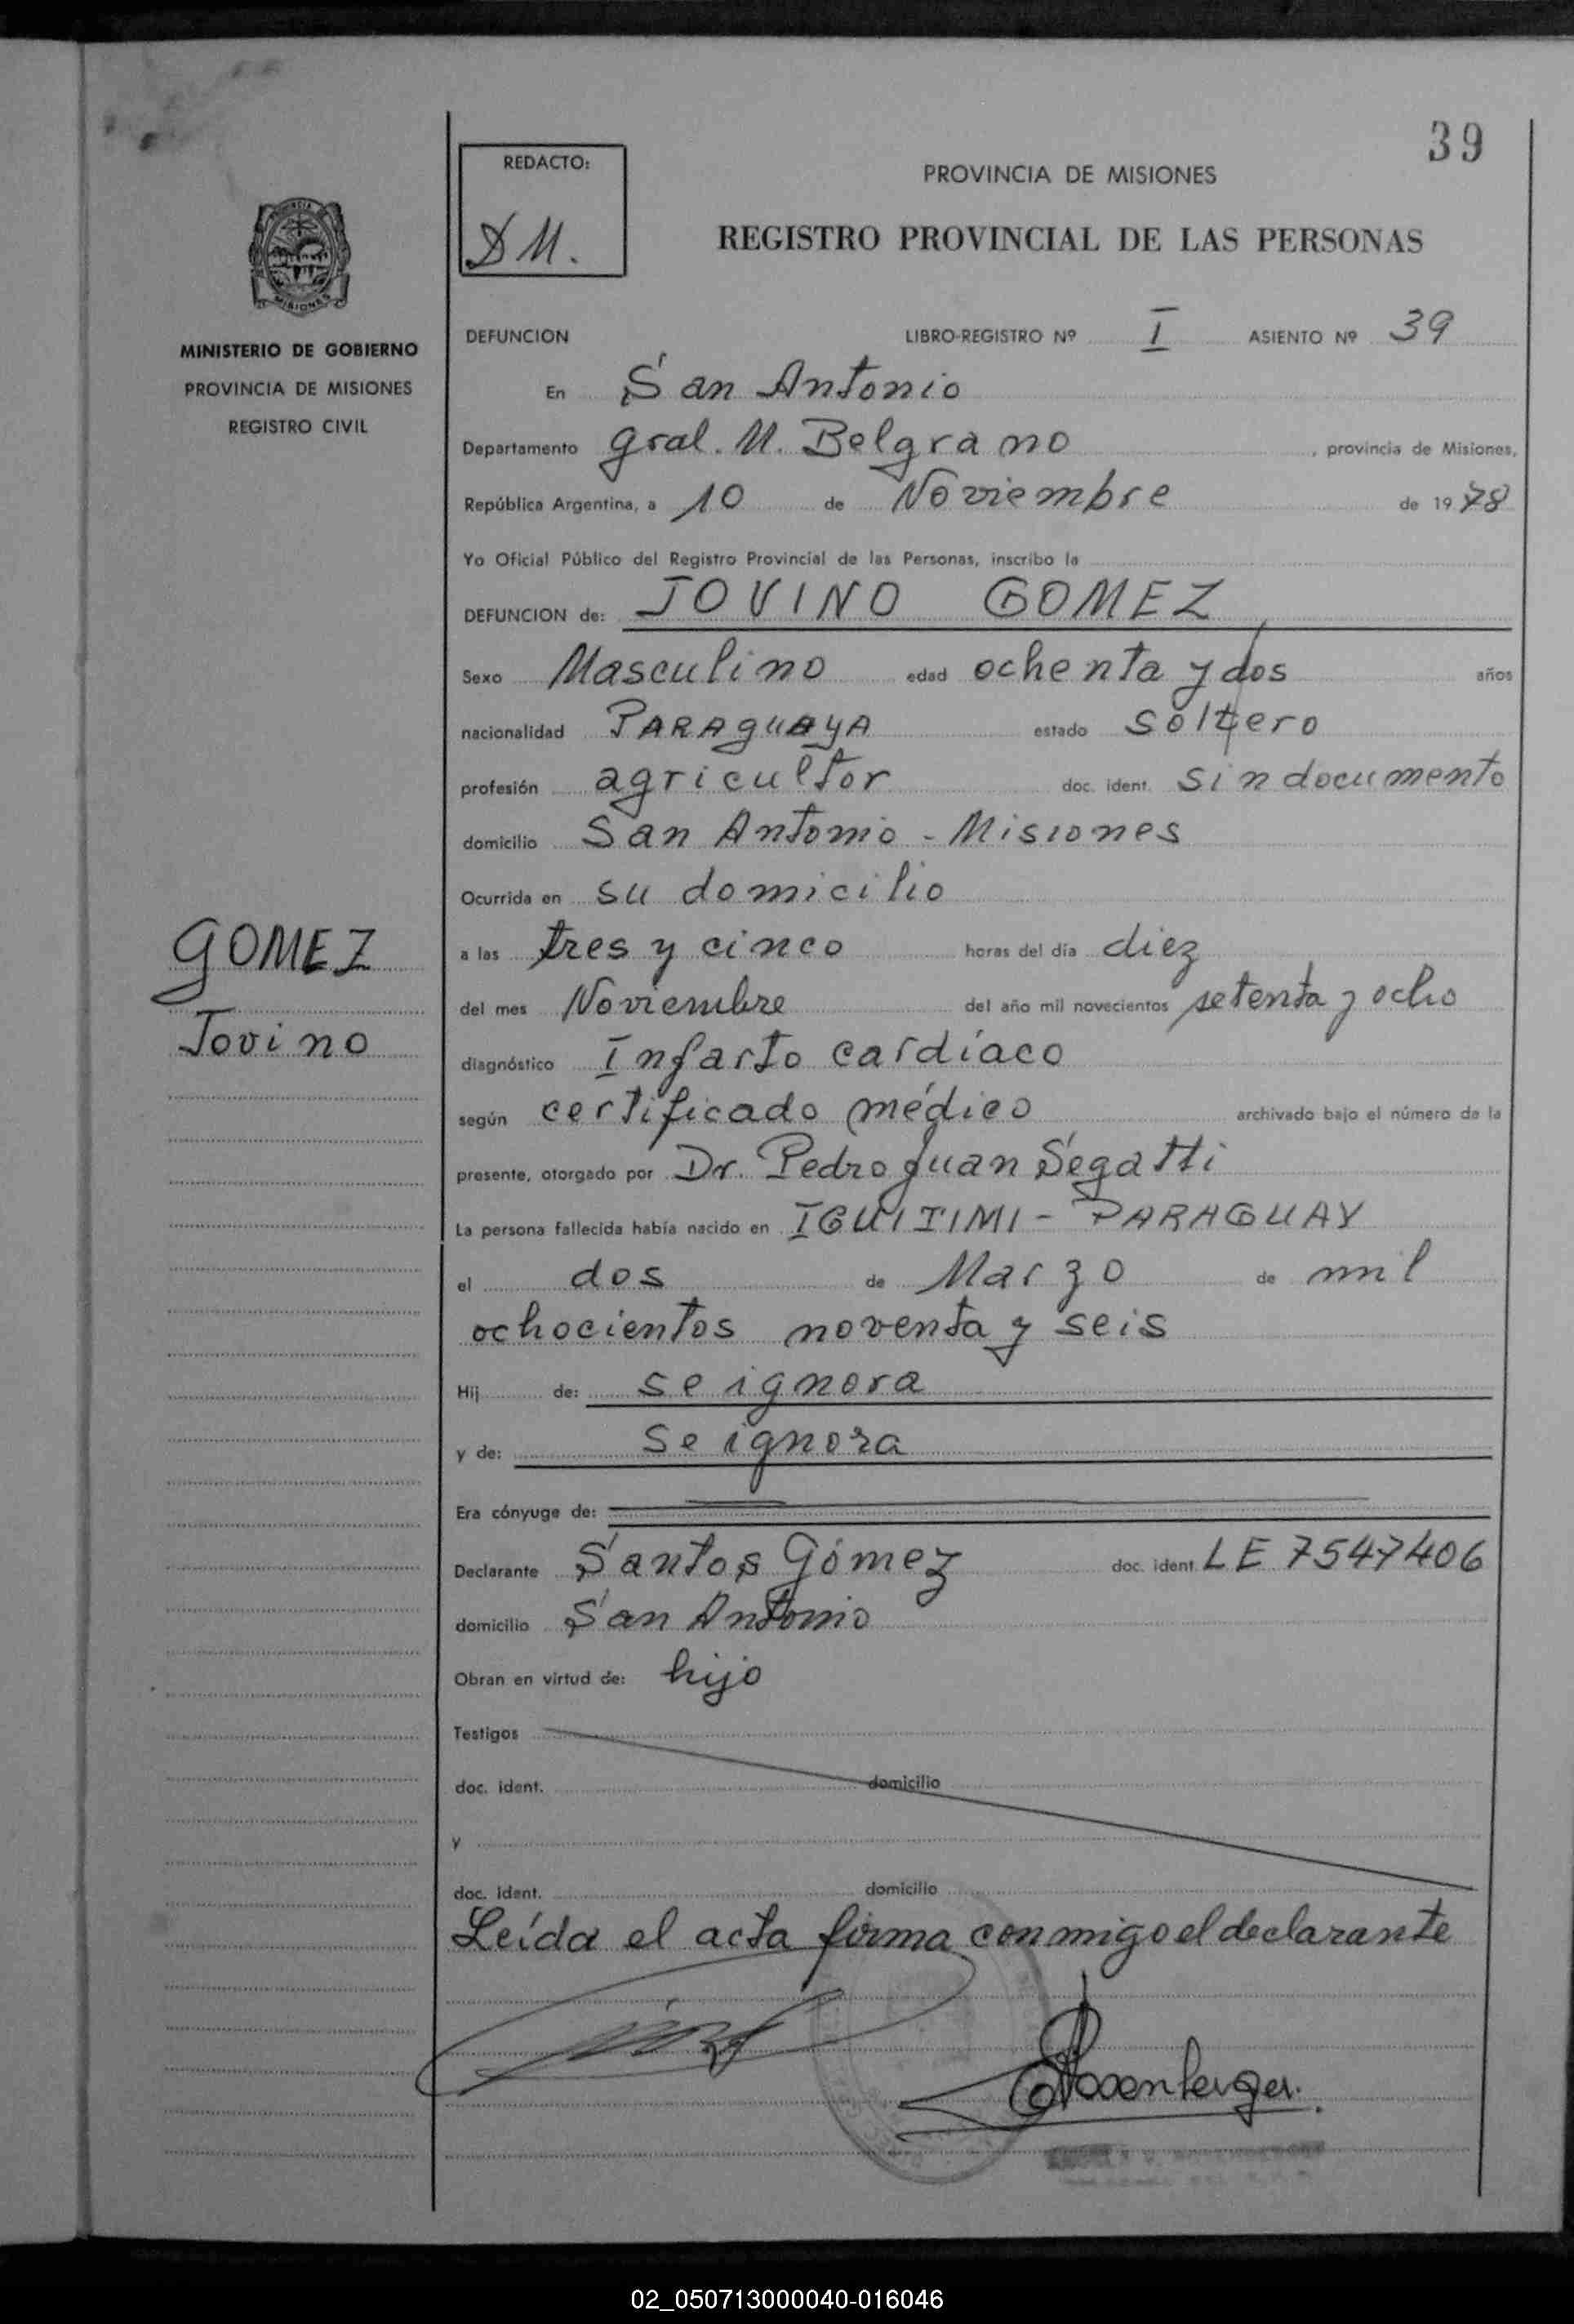 39
REDACTO:
D M.
PROVINCIA DE MISIONES
REGISTRO PROVINCIAL DE LAS PERSONAS
MINISTERIO DE GOBIERNO
PROVINCIA DE MISIONES
REGISTRO CIVIL
DEFUNCION LIBRO-REGISTRO Nº I ASIENTO Nº 39
En San Antonio
Departamento Gral. M. Belgrano, provincia de Misiones,
República Argentina, a 10 de Noviembre de 1978
Yo Oficial Público del Registro Provincial de las Personas, inscribo la
DEFUNCION de: JOVINO GOMEZ
Sexo Masculino edad ochenta y dos años
nacionalidad PARAGUAYA estado soltero
profesión agricultor doc. ident. sin documento
domicilio San Antonio - Misiones
Ocurrida en su domicilio
GOMEZ
Jovino
a las tres y cinco horas del día diez
del mes Noviembre del año mil novecientos setenta y ocho
diagnóstico Infarto cardíaco
según certificado médico archivado bajo el número de la
presente, otorgado por Dr. Pedro Juan Segatti
La persona fallecida había nacido en IGUITIMI - PARAGUAY
el dos de Marzo de mil
ochocientos noventa y seis
Hij de: se ignora
y de: se ignora
Era cónyuge de:
Declarante Santos Gómez doc. ident. LE 7547406
domicilio San Antonio
Obran en virtud de: hijo
Testigos
doc. ident. domicilio
y
doc. ident. domicilio
Leída el acta firma conmigo el declarante
02_050713000040-016046